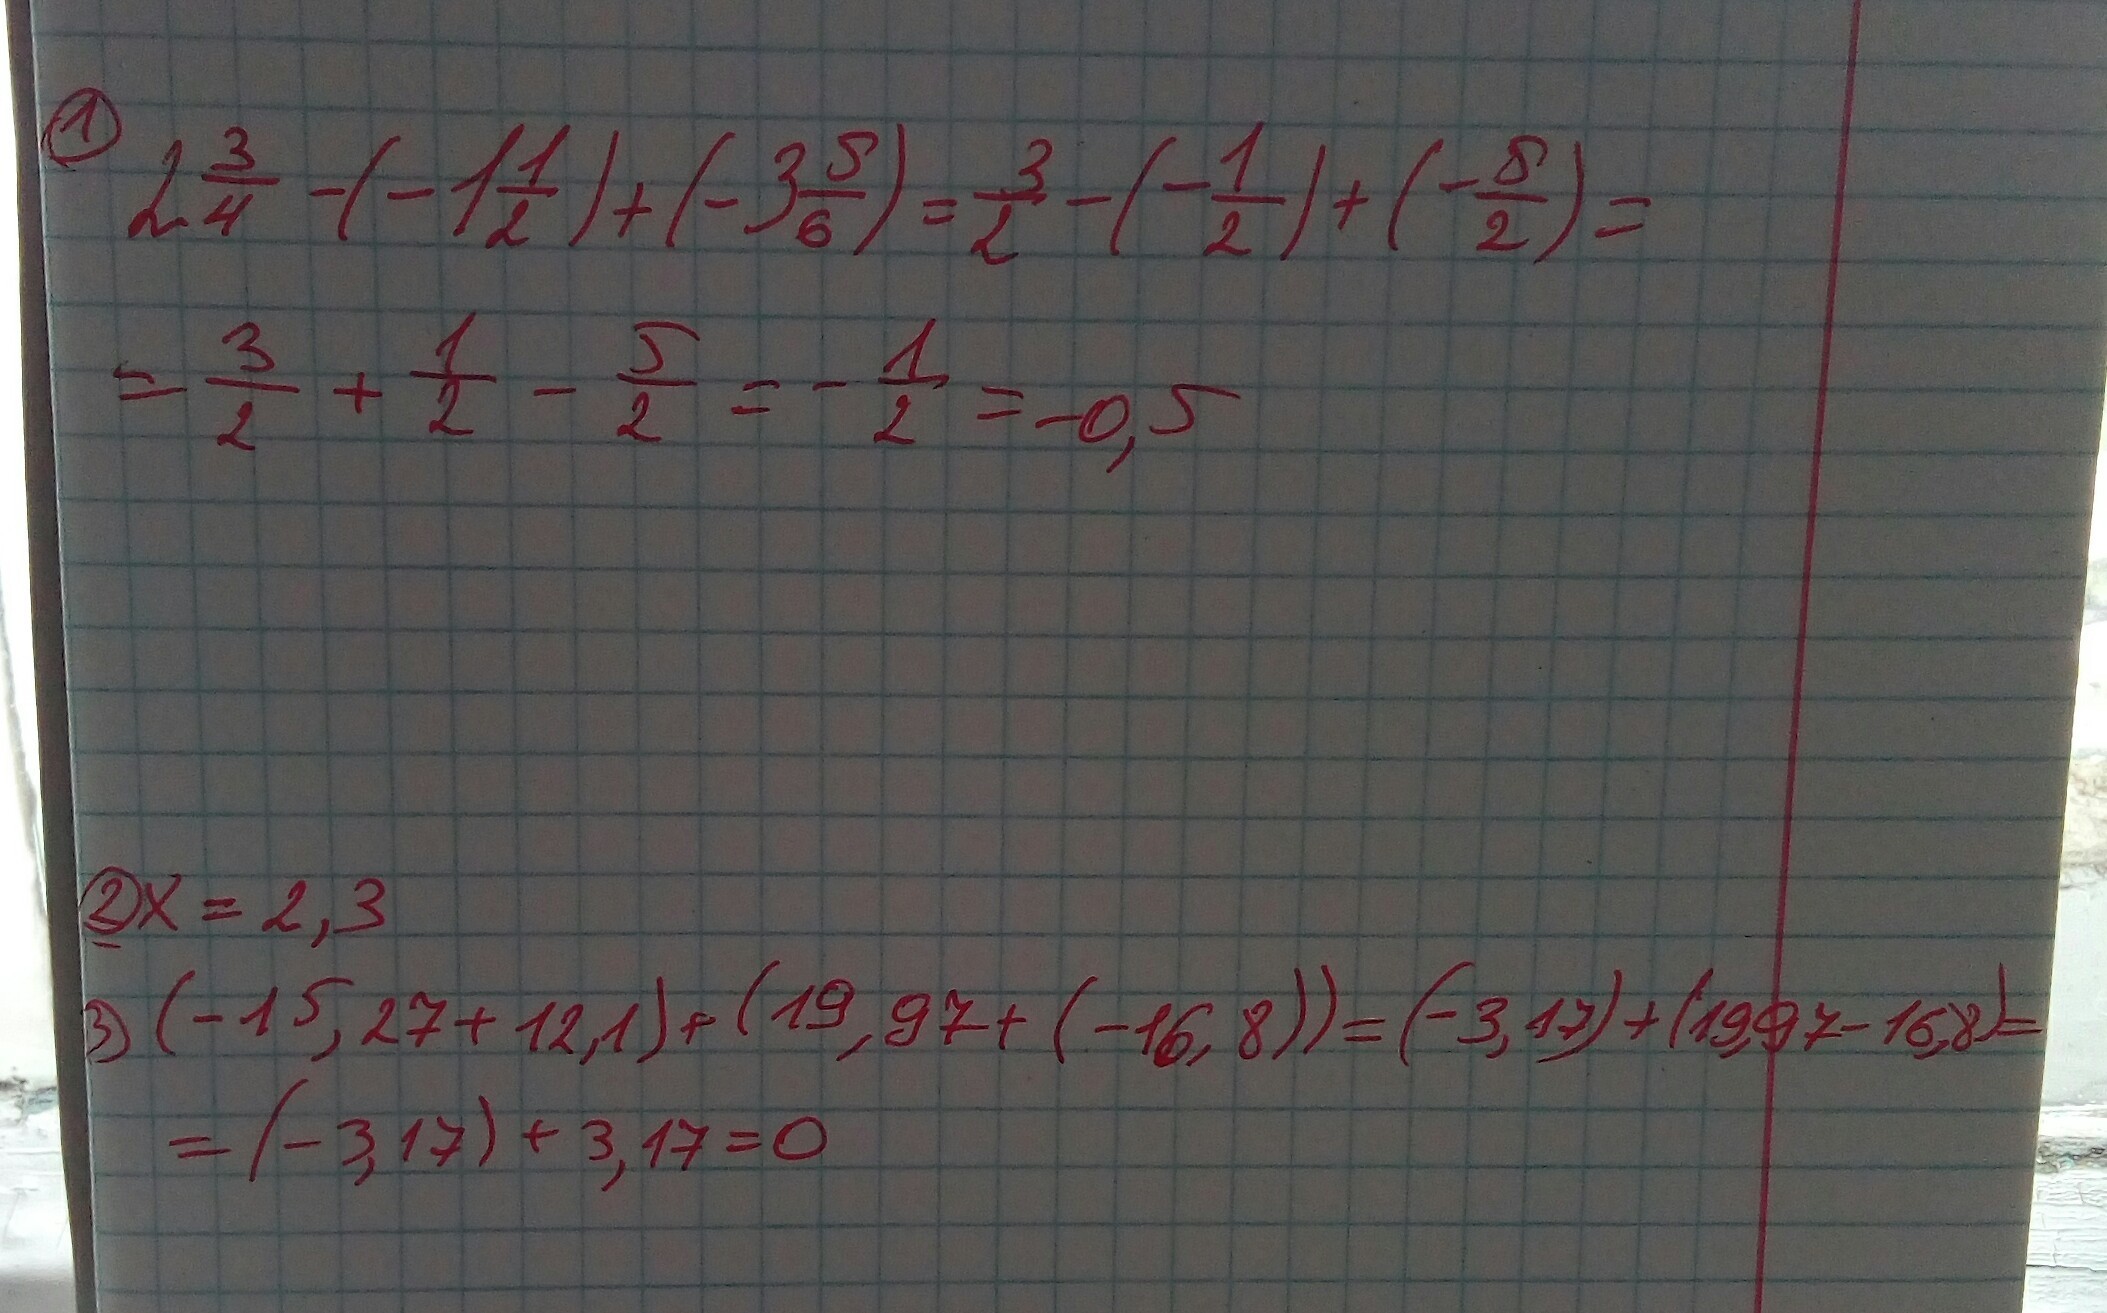 ① 2 3/4 - (-1 1/2) + (-3 5/6) = 3/2 - (-1/2) + (-5/2) =
= 3/2 + 1/2 - 5/2 = -1/2 = -0,5
② x = 2,3
3) (-15,27+12,1)+(19,97+(-16,8))=(-3,17)+(19,97-16,8)=
= (-3,17) + 3,17 = 0